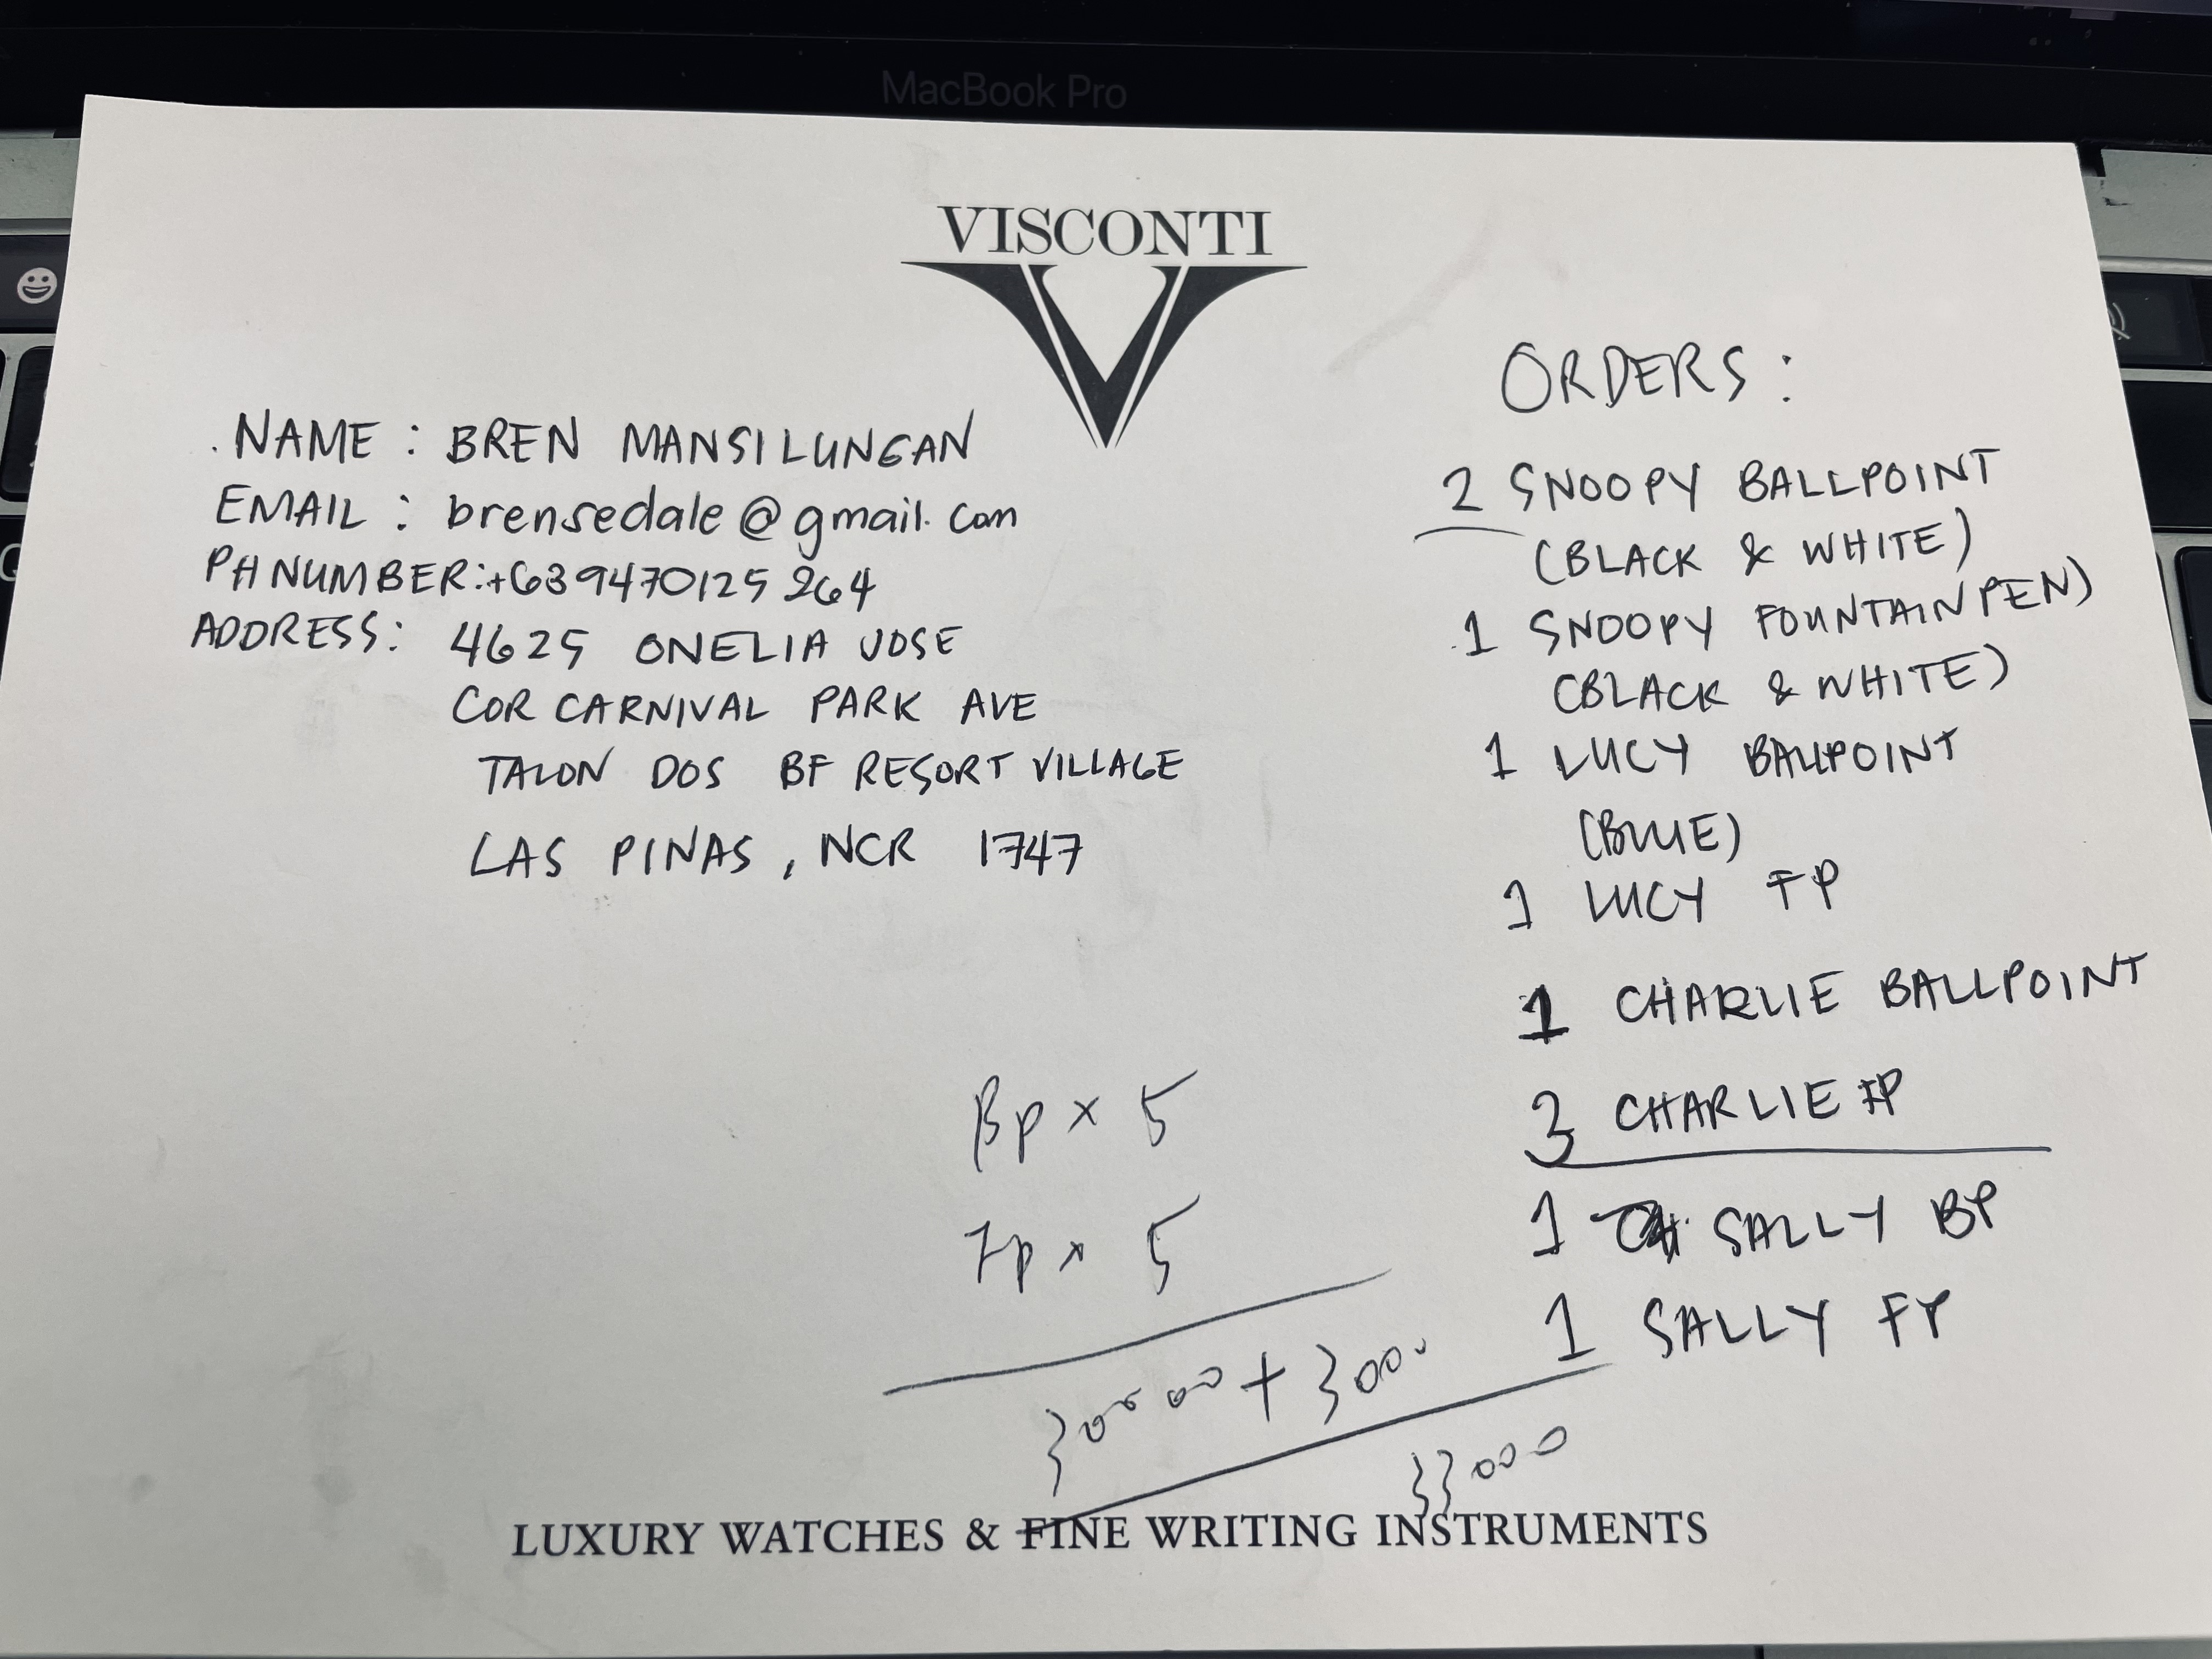 MacBook Pro
VISCONTI
NAME : BREN MANSILUNGAN
EMAIL : brensedale@gmail.com
PH NUMBER:+639470125264
ADDRESS: 4625 ONELIA JOSE
COR CARNIVAL PARK AVE
TALON DOS BF RESORT VILLAGE
LAS PINAS, NCR 1747
ORDERS:
2 SNOOPY BALLPOINT
(BLACK & WHITE)
1 SNOOPY FOUNTAIN PEN)
(BLACK & WHITE)
1 LUCY BALLPOINT
(BLUE)
1 LUCY FP
1 CHARLIE BALLPOINT
3 CHARLIE FP
1 SALLY BP
1 SALLY FP
Bp x 5
Fp x 5
+ 3000
33000
LUXURY WATCHES & FINE WRITING INSTRUMENTS